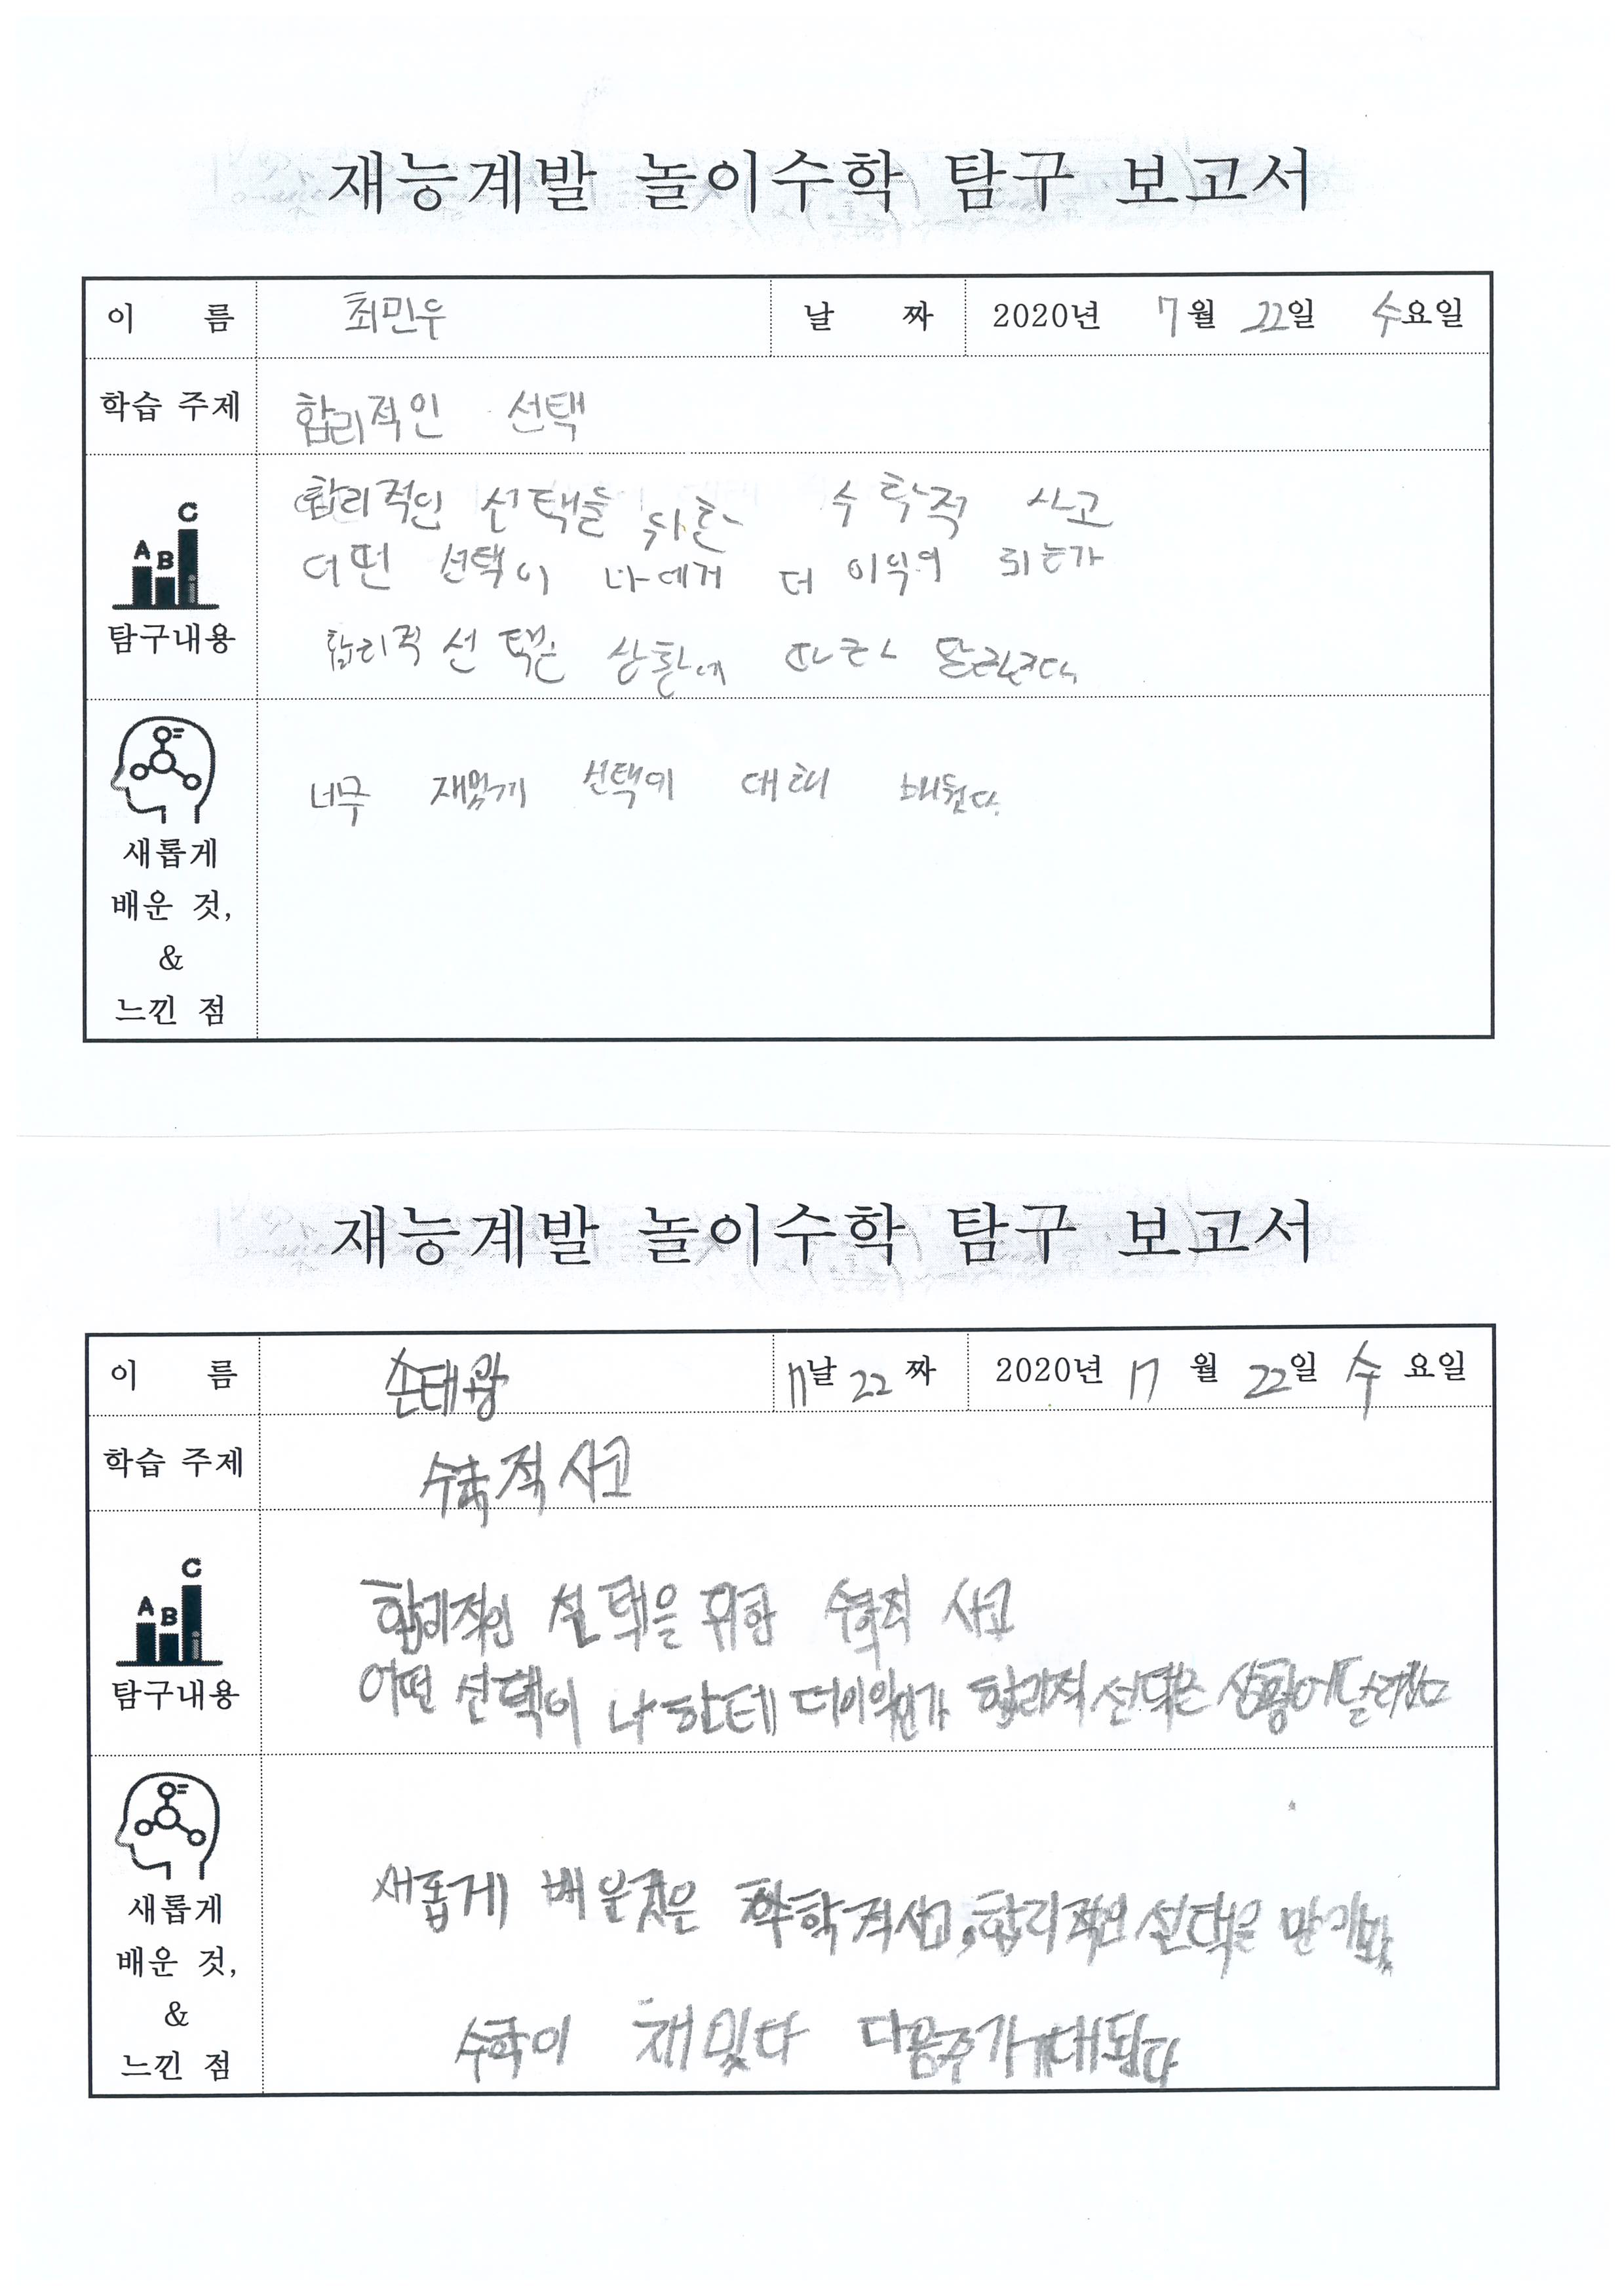 재능계발 놀이수학 탐구 보고서
이 름 최민우 날 짜 2020년 7월 22일 수요일
학습 주제 합리적인 선택
합리적인 선택을 위한 수학적 사고
어떤 선택이 나에게 더 이익이 되는가
A B C
탐구내용
합리적 선택은 상황에 따라 달라진다.
너무 재밌게 선택에 대해 배웠다.
새롭게
배운 것,
&
느낀 점
재능계발 놀이수학 탐구 보고서
이 름 손태왕 날 22 짜 2020년 7월 22일 수요일
학습 주제 수학적 사고
합리적인 선택을 위한 수학적 사고
어떤 선택이 나한테 더이익인가 합리적 선택은 상황에
A B C
탐구내용
새롭게 배운것은 사고, 합리적인 선택을
새롭게
배운 것,
&
느낀 점
수학이 재밌다 다음주가 기대된다